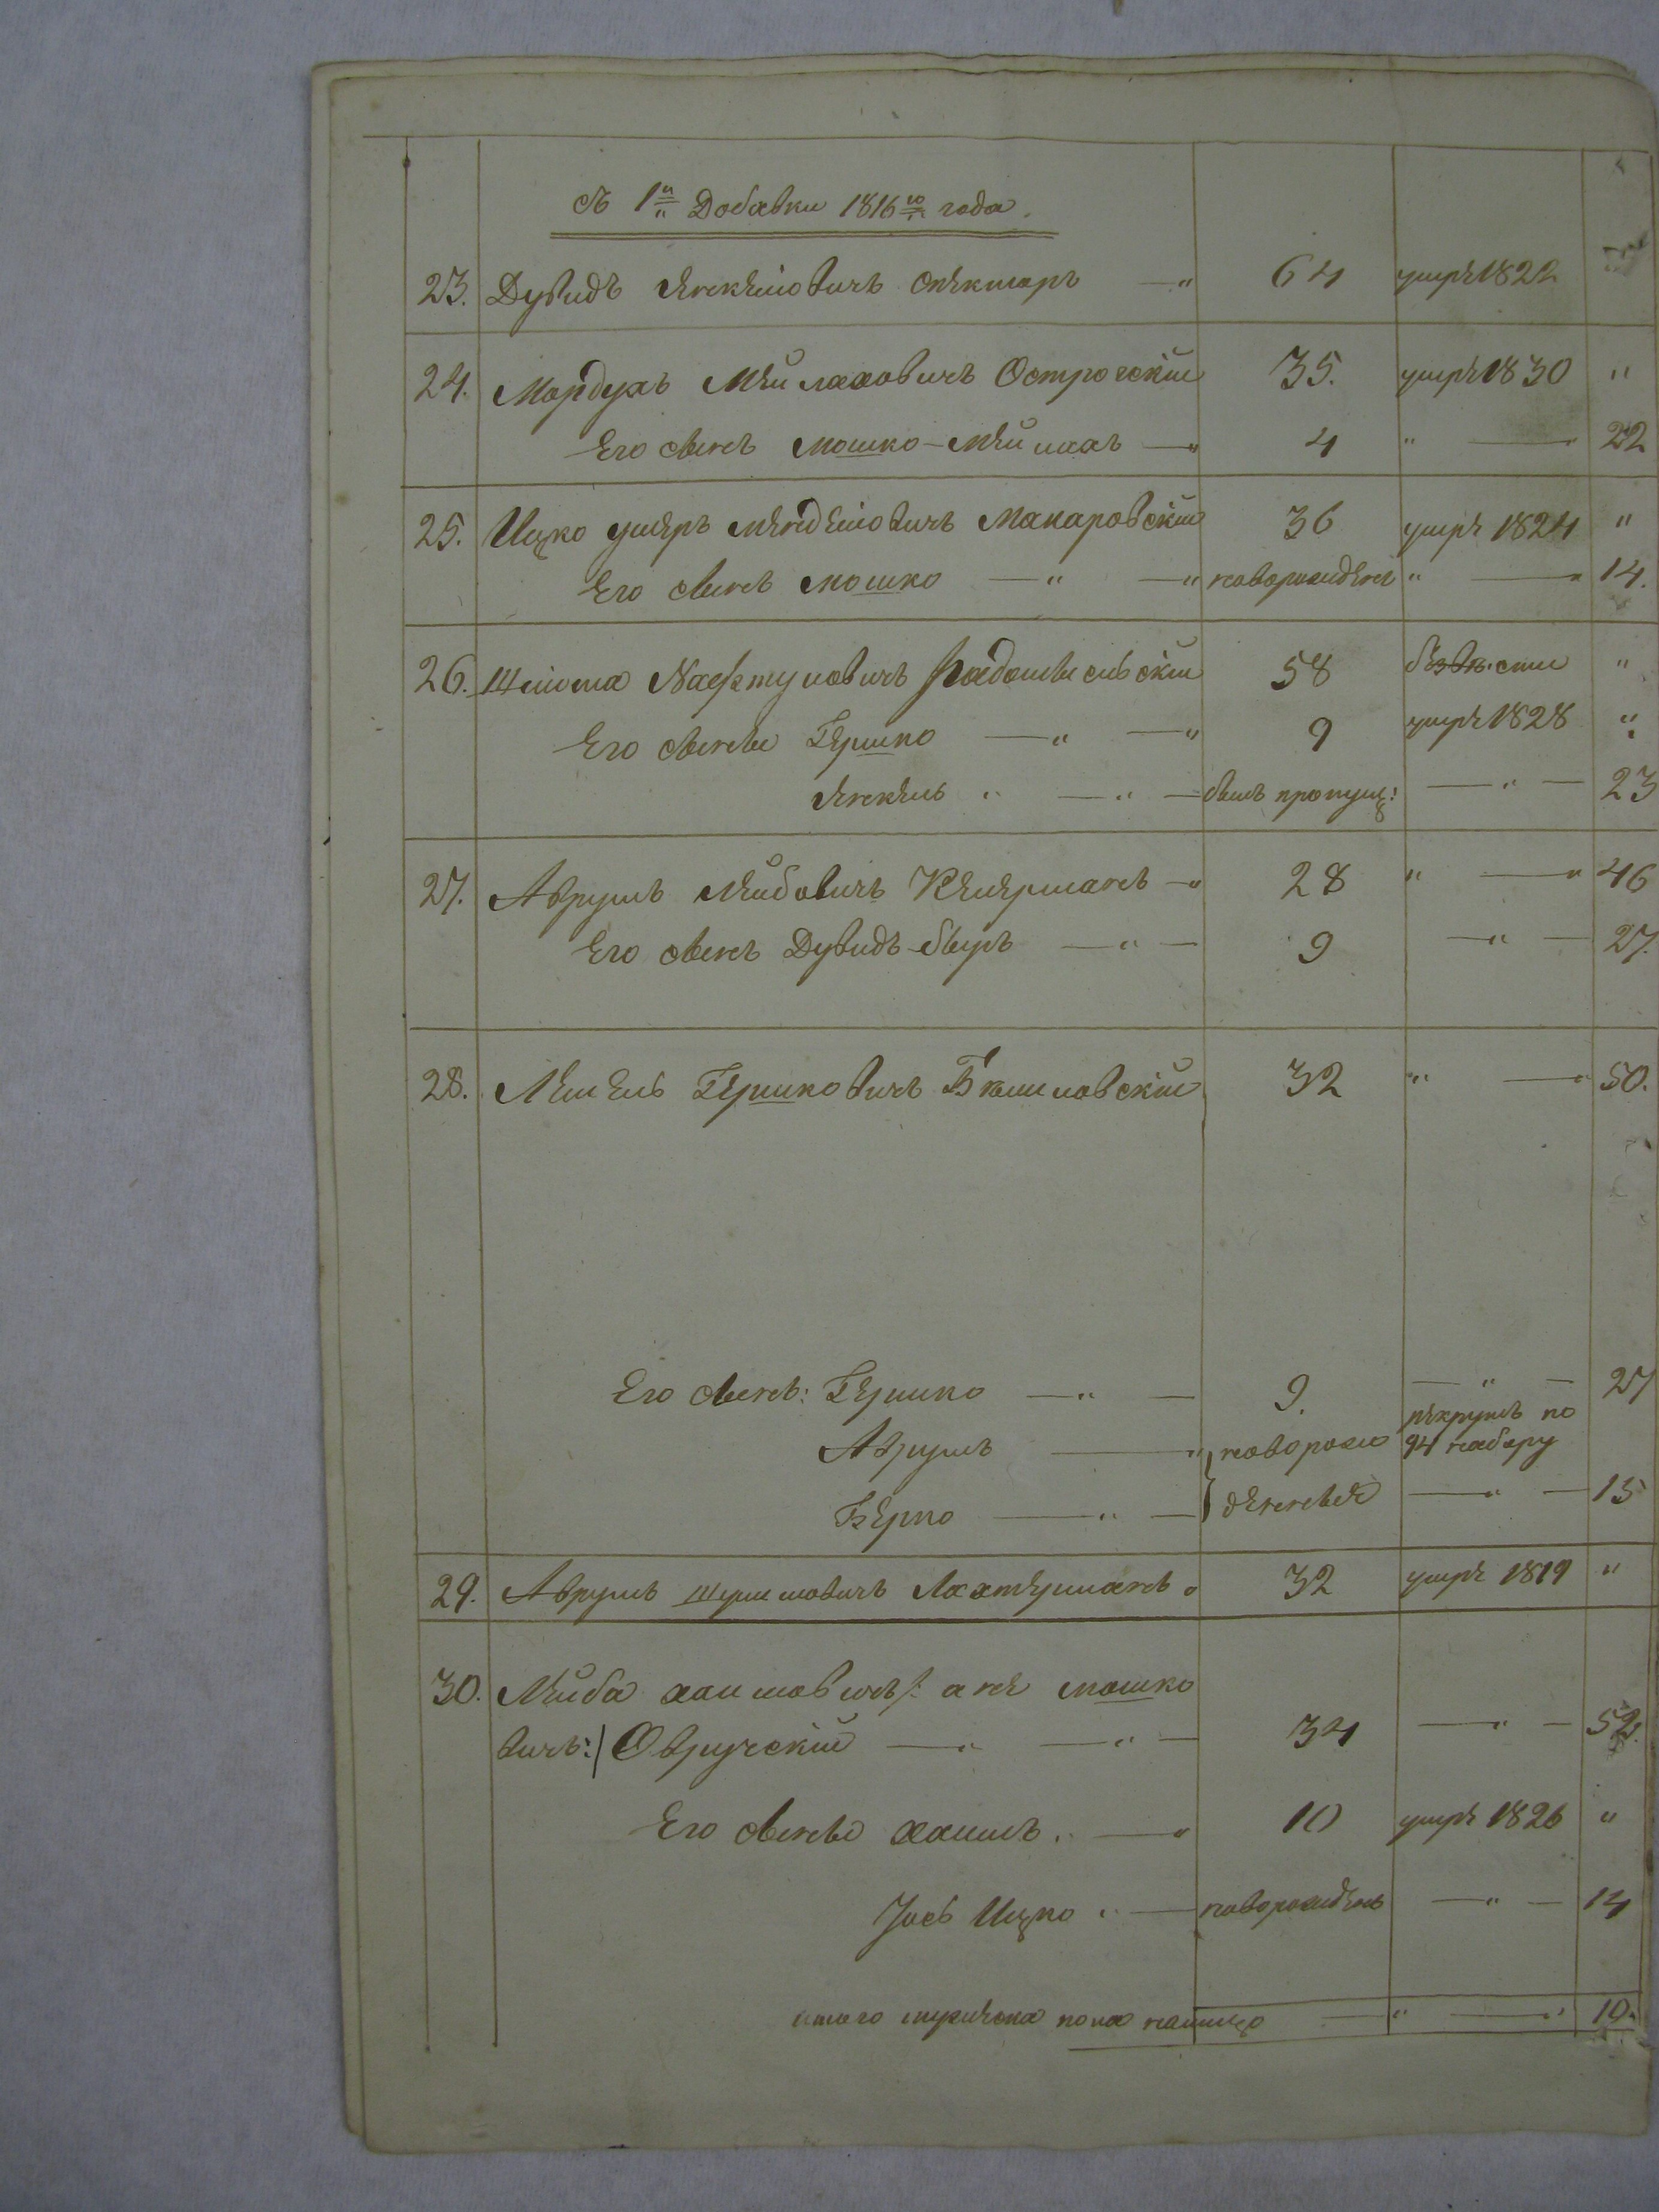 съ 1й Добавки 1816го года.
23. Дувидъ Янкелiовичъ Спектаръ —" 64 умре 1822 "
24. Мордухъ Мейлаховичъ Острогскiй 35. умре 1830 "
Его сынъ Мошко-Мейлахъ —" 4 " —" 22
25. Ицко умеръ Менделiовичъ Макаровскiй 36 умре 1824 "
Его сынъ Мошко —" —" новорожденъ " —" 14.
26. Шлiома Нафтуловичъ Радомысльскiй 58 безвѣсти "
Его сыны Гершко —" —" 9 умре 1828 "
Янкель " —" — былъ пропущ: —" — 23
27. Аврумъ Лейбовичъ —" 28 " —" 46
Его сынъ Дувидъ-Беръ —" — 9 —" — 27.
28. Лейбель Гершковичъ Бѣлиловскiй 32 " —" 50.
Его сынъ: Гершко —" — 9. —" — 27
Аврумъ —" новорож рекрутъ по 94 набору
Берко —" — денные —" — 15
29. Аврумъ Шулимовичъ Лахтерманъ " 32 умре 1819 "
30. Лейба Хаимовичъ /: а не Мошко
вичъ:/ Овручскiй —" —" — 34 —" — 52.
Его сыны Хаимъ " —" 10 умре 1826 "
Iось Ицко " — новорожденъ —" — 14
итого мужеска пола налицо —" —" 10.